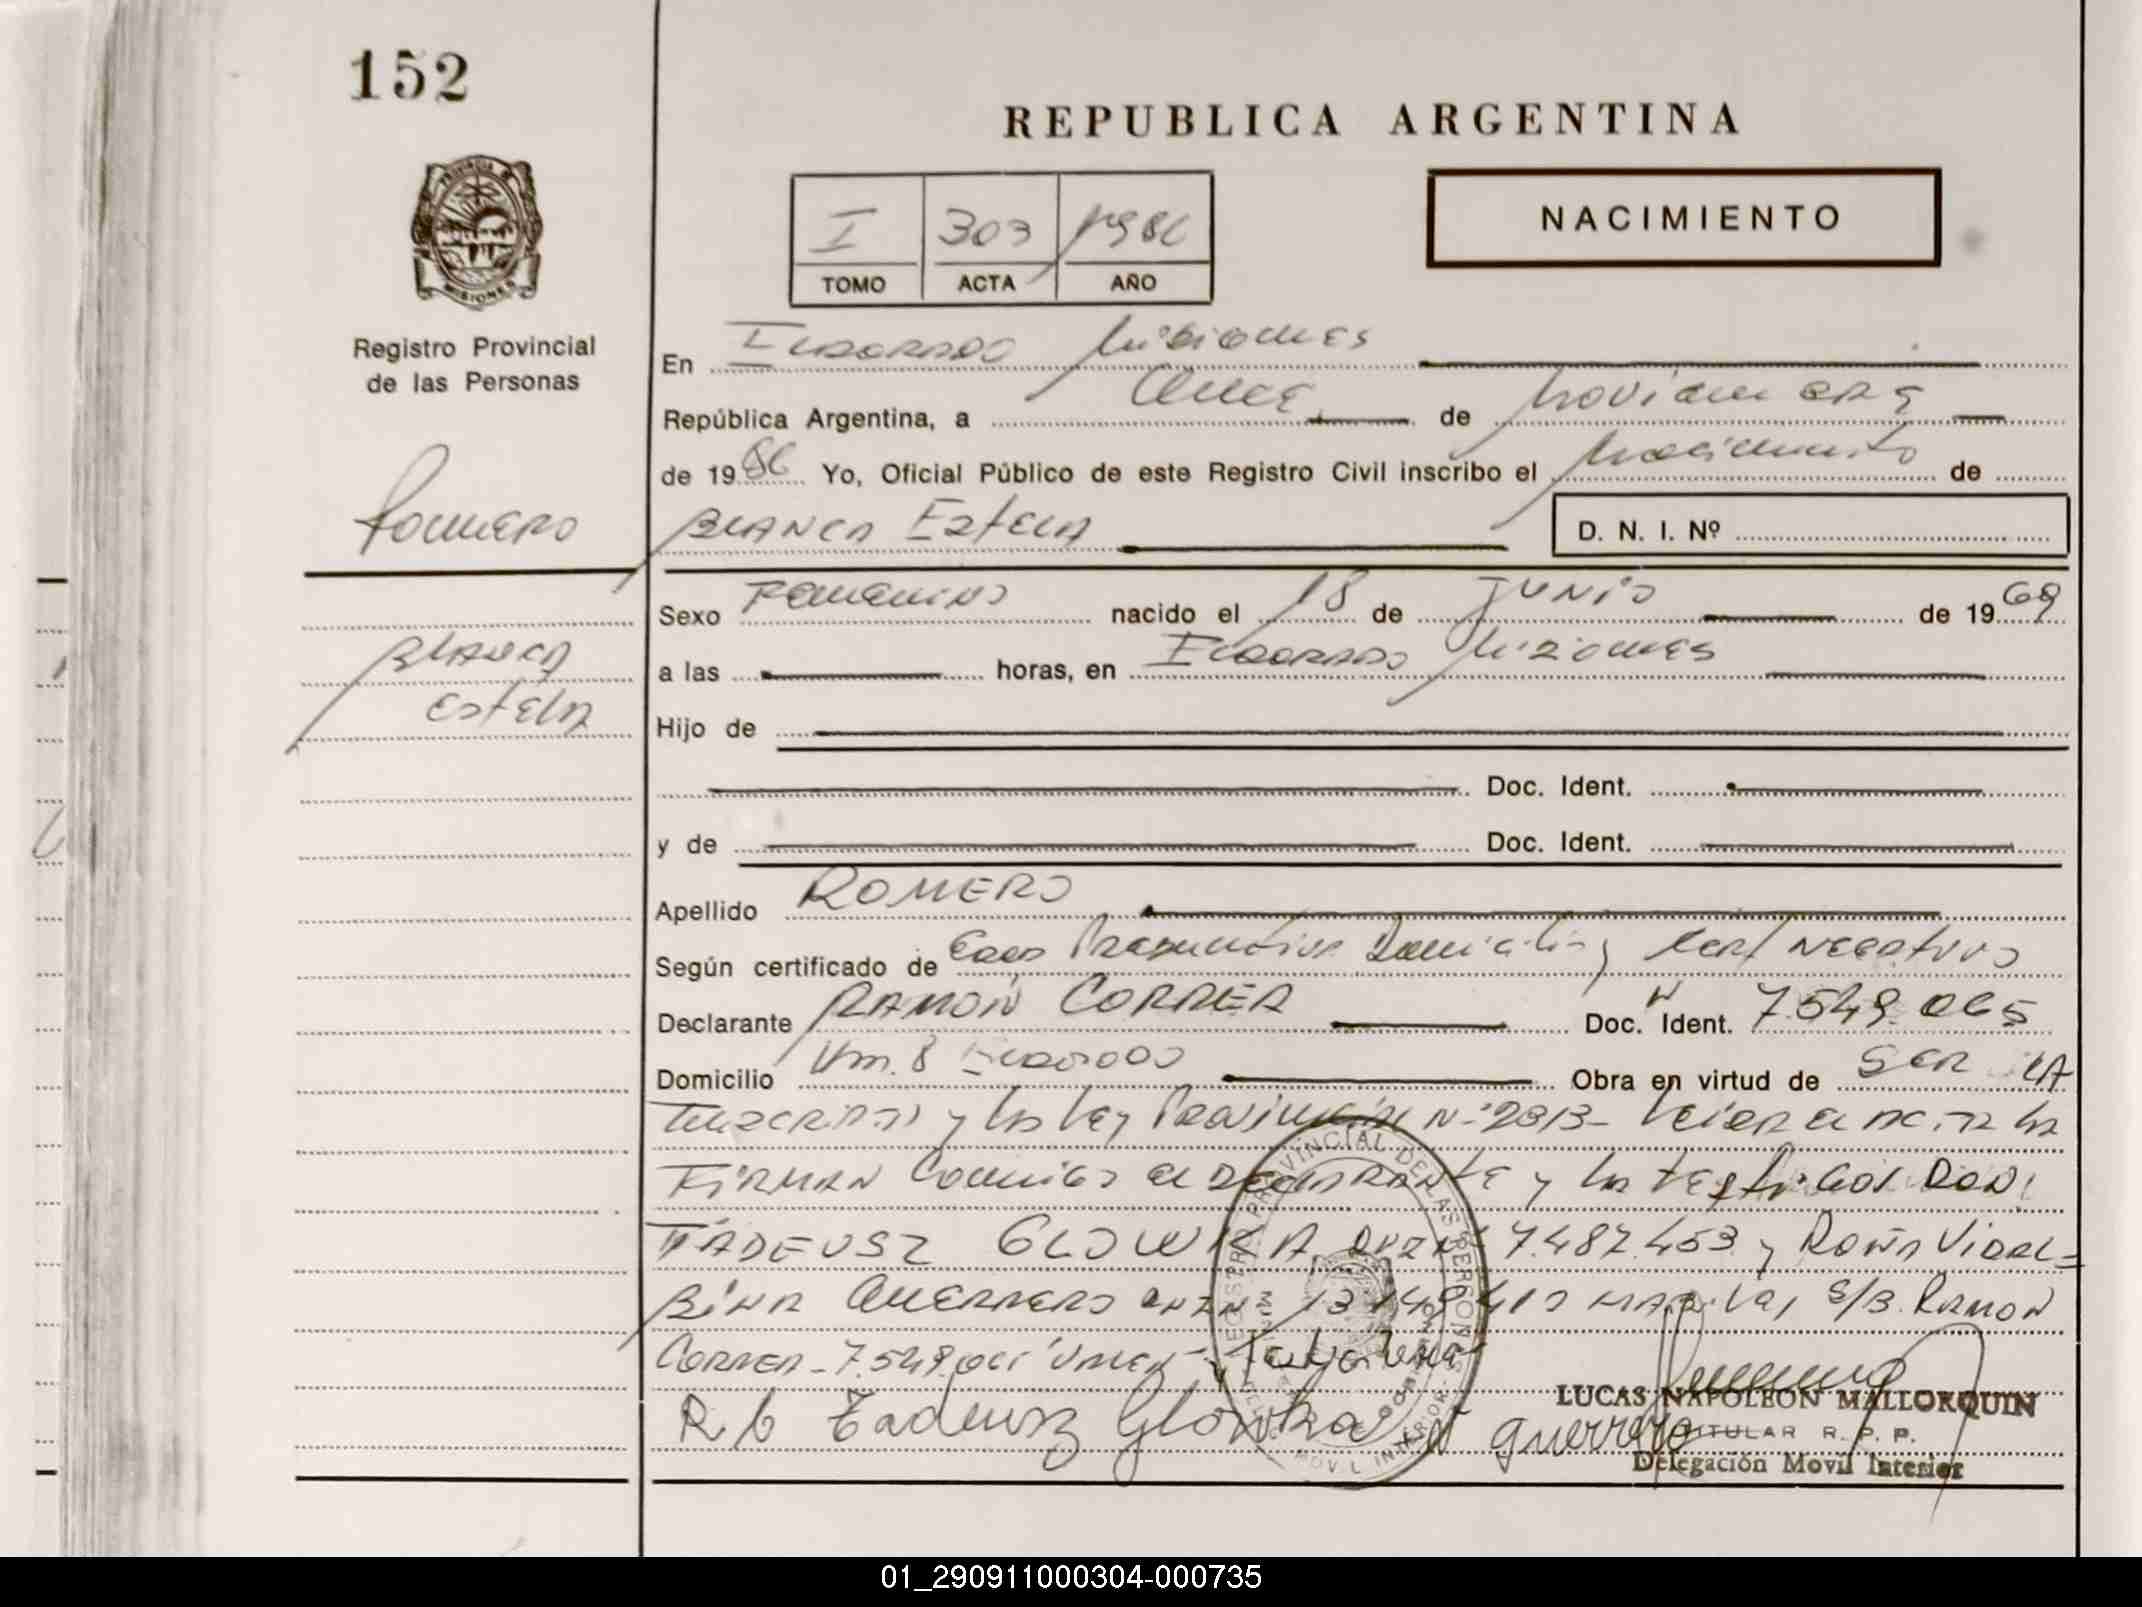 152
REPUBLICA ARGENTINA
NACIMIENTO
I 303 1986
TOMO ACTA AÑO
PROVINCIA DE
MISIONES
Registro Provincial
de las Personas
En Eldorado Misiones
República Argentina, a once de noviembre
de 1986 Yo, Oficial Público de este Registro Civil inscribo el nacimiento de
Romero
BLANCA EstELA
D. N. I. Nº
Sexo Femenino nacido el 18 de JUNIO de 1969
Blanca
EstElA
a las horas, en Eldorado Misiones
Hijo de
Doc. Ident.
y de Doc. Ident.
Apellido ROMERO
Según certificado de Edad Presuntiva Domicilio y Cert Negativo
Declarante RAMON CORRER Doc. Ident. 7.549.065
Domicilio Km. 8 Eldorado Obra en virtud de SER LA
y la Ley Provincial Nº 2813- Leida el acta la
FIRMAN Conmigo el DEClARANtE y los testigos DON
TADEUSZ GLOWKA 7.487.453 y Doña Vidal-
BINA GUERRERO E/B. RAMON
CORRER - 7.549.065
R b Tadeusz Glowka
guerrero
LUCAS NAPOLEON MALLORQUIN
TITULAR R. P. P.
Delegación Movil Interior
REGISTRO PROVINCIAL DE LAS PERSONAS
MOVIL INTERIOR
01_290911000304-000735